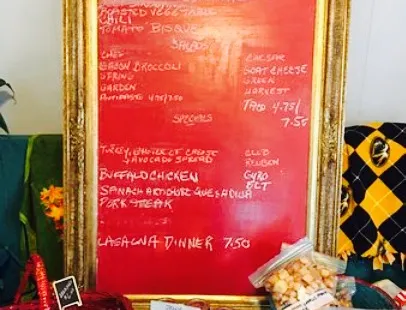 ROASTED VEGETABLE
CHILI
TOMATO BISQUE
SALADS
CHEF
BACON BROCCOLI
SPRING
GARDEN
ANTIPASTO 4.75/7.50
CAESAR
GOAT CHEESE
GREEK
HARVEST
TACO 4.75/
7.50
SPECIALS
TURKEY, CHEESE
& AVOCADO SPREAD
BUFFALO CHICKEN
SPINACH ARTICHOKE QUESADILLA
PORK STEAK
CLUB
REUBEN
GYRO
BLT
LASAGNA DINNER 7.50